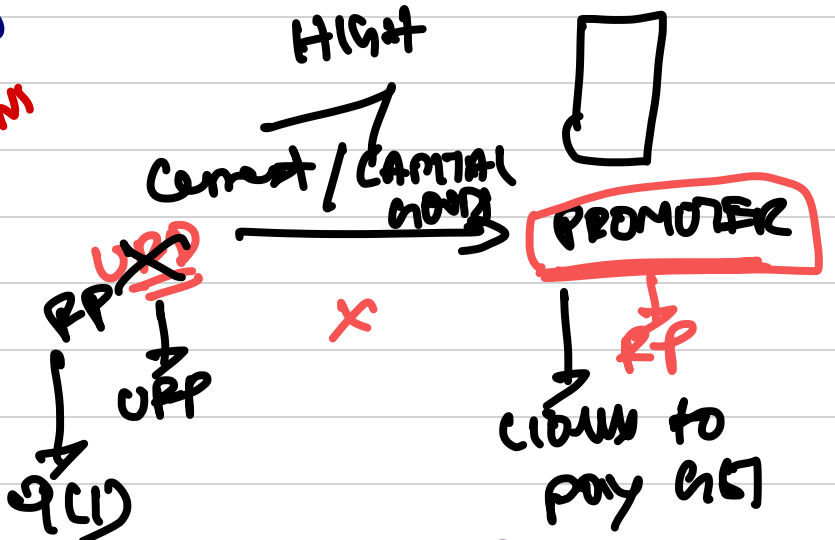 HIGH
Cement / CAPITAL
GOODS
PROMOTER
URD
RP
X
RP
URP
liable to
9(1)
pay GST